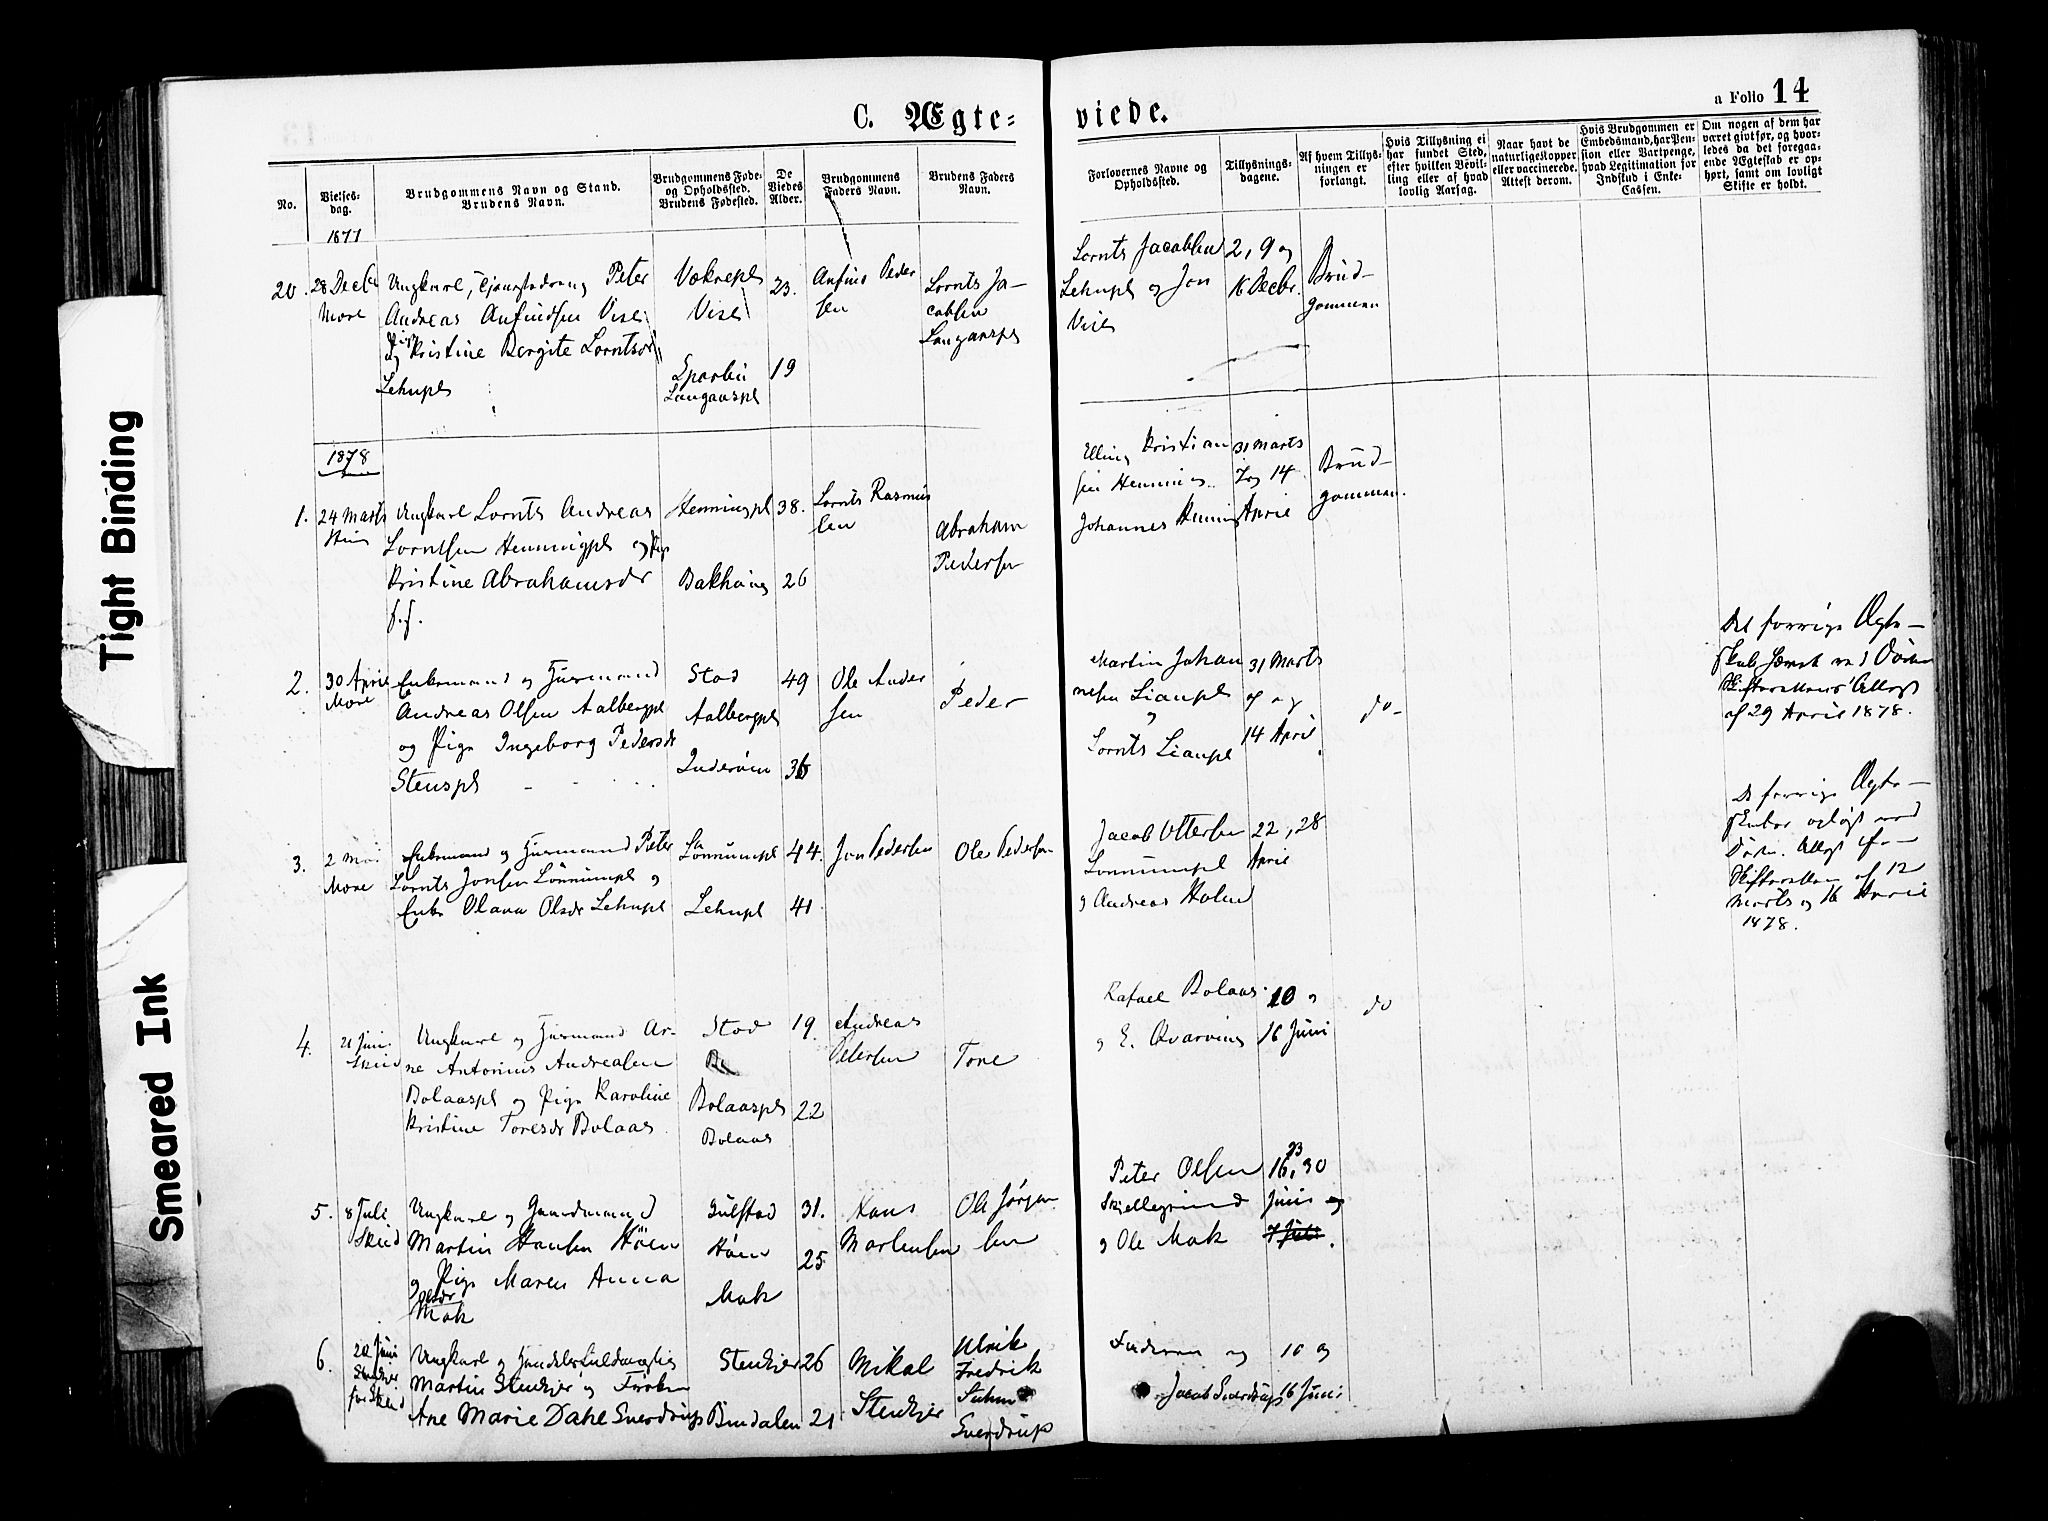 Tight Binding
Smeared Ink
C. Ægte=
viede.
a Folio 14
No.
Vielses-
dag.
Brudgommens Navn og Stand.
Brudens Navn.
Brudgommens Føde-
og Opholdssted.
Brudens Fødested.
De
Viedes
Alder.
Brudgommens
Faders Navn.
Brudens Faders
Navn.
Forlovernes Navne og
Opholdssted.
Tillysnings-
dagene.
Af hvem Tillys-
ningen er
forlangt.
Hvis Tillysning ei
har fundet Sted,
efter hvilken Bevil-
ling eller af hvad
lovlig Aarsag.
Naar havt de
naturlige Kopper
eller vaccinerede.
Attest derom.
Hvis Brudgommen er
Embedsmand, har Pen-
sion eller Vartpenge,
hvad Legitimation for
Indskud i Enke-
Cassen.
Om nogen af dem har
været gift før, og hvor-
ledes da det foregaa-
ende Ægteskab er op-
hørt, samt om lovligt
Skifte er holdt.
1877
20.
28 Decbr
More
Ungkarl, Tjenestedreng Peter
Andreas Anfindsen Vise
Pige Kristine Bergite Lorntsdr
Lehnpl
Vekrepl
Vise
Sparbu
Langaaspl
23.
19
Anfind Peder
sen
Lornts Ja-
cobsen
Langaaspl
Lornts Jacobsen
Lehnpl og Jon
Vise
2, 9 og
16 Decbr.
Brud-
gommen
1878
1.
24 Marts
Ungkarl Lornts Andreas
Lorntsen Henningpl og Pige
Kristine Abrahamsdr
f.f.
Henningpl
Bakhaug
38.
26
Lornts Rasmus
sen
Abraham
Pedersen
Elling Kristian
sen Henning
Johannes Henning
31 Marts
7 og 14
April
Brud-
gommen.
2.
30 April
More
Enkemand og Husmand
Andreas Olsen Aalbergpl
og Pige Ingeborg Pedersdr
Stenspl
Stod
Aalbergpl
Inderøen
49
36
Ole Ander
sen
Peder
Martin Johan
nesen Lianpl
og
Lornts Lianpl
31 Marts
og
14 April
do-
Det forrige Ægte-
skab hævet ved Døden
Skifterettens Attest
af 29 April 1878.
3.
2 Mai
More
Enkemand og Husmand Peter
Lornts Jonsen Lønnumpl og
Enke Olava Olsdr Lehnpl
Lønnumpl
Lehnpl
44.
41
Jon Pedersen
Ole Pedersen
Jacob Ottersen
Lønnumpl
og Andreas Holm
22, 28
April
De forrige Ægte-
skaber opløst ved
Døden. Attest fra
Skifteretten af 12
Marts og 16 April
1878.
4.
21 Juni
Skeid
Ungkarl og Husmand Ar-
ne Antonius Andreasen
Bolaaspl og Pige Karoline
Kristine Toresdr Bolaas.
Stod
Bolaaspl
Bolaas
19.
22
Andreas
Petersen
Tore
Rafael Bolaas
og E. Qvarving
10 og
16 Juni
do
5.
8 Juli
Skeid
Ungkarl og Gaardmand
Martin Hansen Høen
og Pige Maren Anna
Olsdr
Mok
Gulstad
Høen
Mok
31.
25
Hans
Mortensen
Ole Jørgen
sen
Peter Olsen
Skjellegrind
og Ole Mok
16, 23, 30
Juni og
7 Juli.
6.
20 Juni
Stenkjer
for Skeid
Ungkarl og Handelsfuldmægtig
Martin Stenkjer og Frøken
Ane Marie Dahl Sverdrup
Stenkjer
Bindalen
26
21
Mikal
Stenkjer
Ulrik
Fredrik
Suhm
Sverdrup
Faderen og
Jacob Sverdrup
10 og
16 Juni